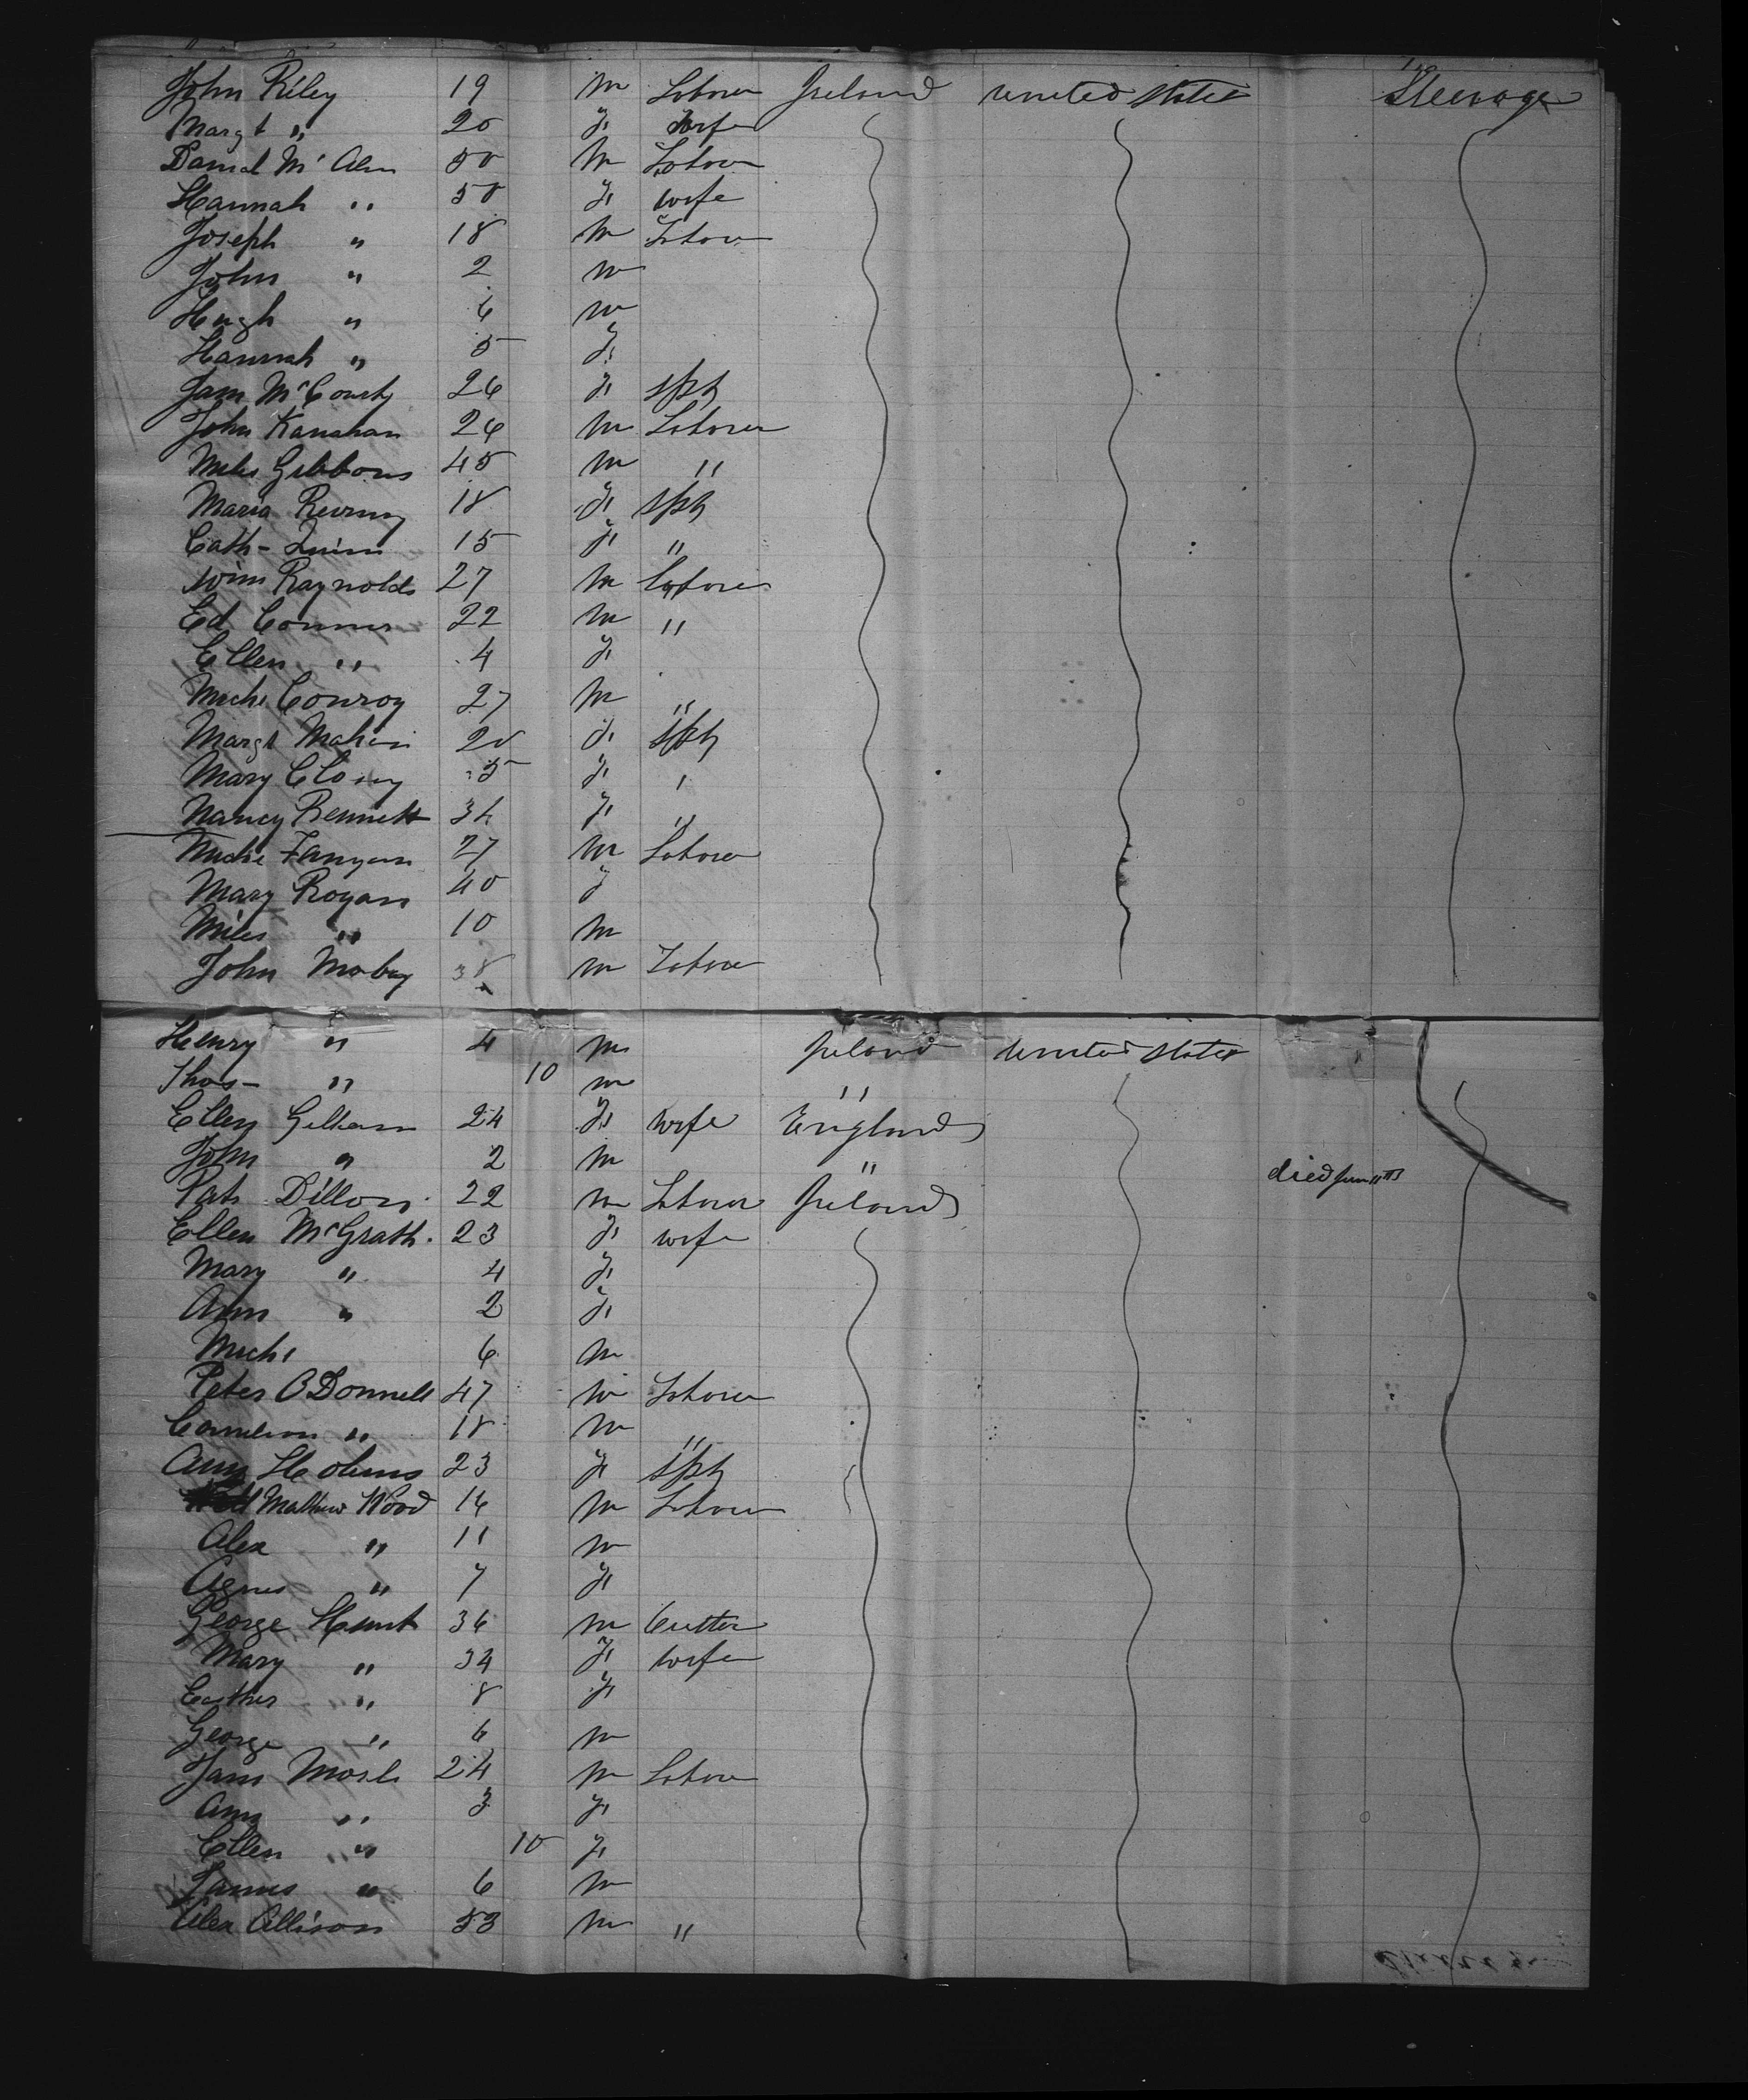 John Riley 19 m Laborer Ireland United States Steerage
Margt " 20 f Wife
Daniel Mc 50 m Laborer
Hannah " 50 f wife
Joseph " 18 m Laborer
John " 2 m
Hugh " 6 m
Hannah " 5 f
Jam 26 f Spst
John Kanahan 26 m Laborer
Miles Gibbons 45 m "
Maria 18 f Spst
Cath- Quinn 15 f "
Winn Raynolds 27 m Laborer
Ed Connor 22 m "
Ellen " 4 f
Michl Conroy 27 m "
Margt 20 f Spst
Mary f "
Nancy Bennett 34 f "
Michl 27 m Laborer
Mary Rogan 40 f
Miles " 10 m
John 38 m Laborer
Henry " 4 m Ireland United States
Thos- " 10 m "
Ellen 24 f wife England
John " 2 m " died June 11th
Pat Dillon 22 m Laborer Ireland
Ellen McGrath 23 f wife
Mary " 4 f
Ann " 2 f
Michl 6 m
Peter O Donnell 47 m Laborer
" 18 m "
Ann Holmes 23 f Spst
Mathew Wood 14 m Laborer
Alex " 11 m
Agnes " 7 f
George Hunt 36 m Cutter
Mary " 34 f wife
Easther " 8 f
George " 6 m
Jam 24 m Laborer
Ann " 3 f
Ellen " 10 f
James " 6 m
Alex Allison 53 m "